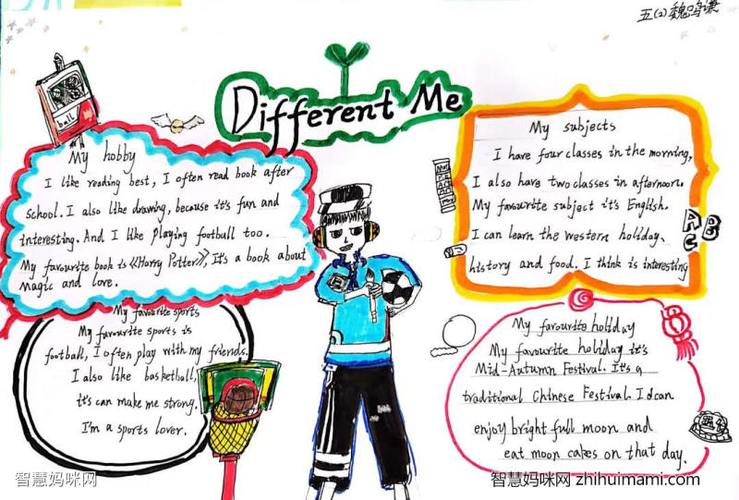 五(2)魏鸣谦
Different Me
ball
My hobby
I like reading best, I often read book after
school. I also like drawing, because it's fun and
interesting. And I like playing football too.
My favourite book is《Harry Potter》, It's a book about
Magic and love.
My favorite sports
My favourite sports is
football, I often play with my friends.
I also like basketball,
it's can make me strong.
I'm a sports lover.
My subjects
I have four classes in the morning,
I also have two classes in afternoon.
My favourite subject it's English.
I can learn the western holiday.
history and food. I think is interesting
A B
C
My favourite holiday
My favourite holiday it's
Mid-Autumn Festival. It's a
traditional Chinese Festival. I can
enjoy bright full moon and
eat moon cakes on that day.
智慧妈咪网
智慧妈咪网 zhihuimami.com